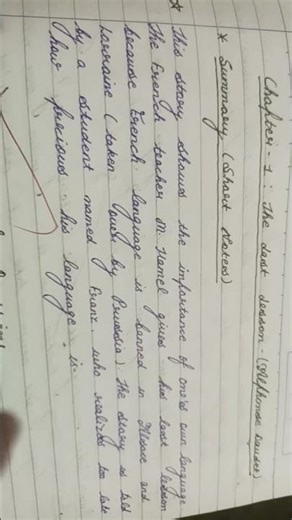 Chapter - 1 : The Last Lesson - (Alphonse Daudet)
* Summary (Short Notes)
* This story shows the importance of one's own language
The French teacher M. Hamel gives his last lesson
because French language is banned in Alsace and
Lorraine (taken over by Prussia). The story is told
by a student named Franz who realizes too late
how precious his language is.